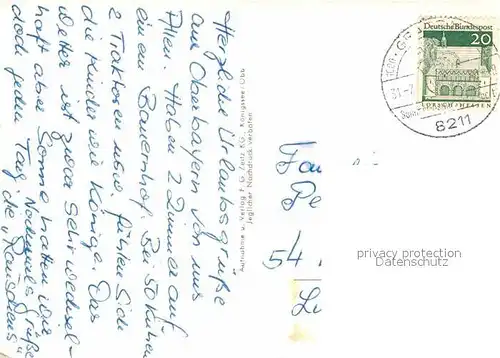 Herzliche Urlaubsgrüße
aus Oberbayern von uns
Allen. Haben 2 Zimmer auf
einem Bauernhof. Bei 50 Kühen
2 Traktoren usw. fühlen sich
die Kinder wie Könige. Das
Wetter ist zwar sehr wechsel-
haft aber Sonne hatten wir
doch jeden Tag. Nochmals Grüße
die "
Aufnahme u. Verlag F. G. Zeitz KG., Königssee/Obb.
Jeglicher Nachdruck verboten
Deutsche Bundespost
20
LORSCH/HESSEN
8211
Fa
Pe
54
privacy protection
Datenschutz